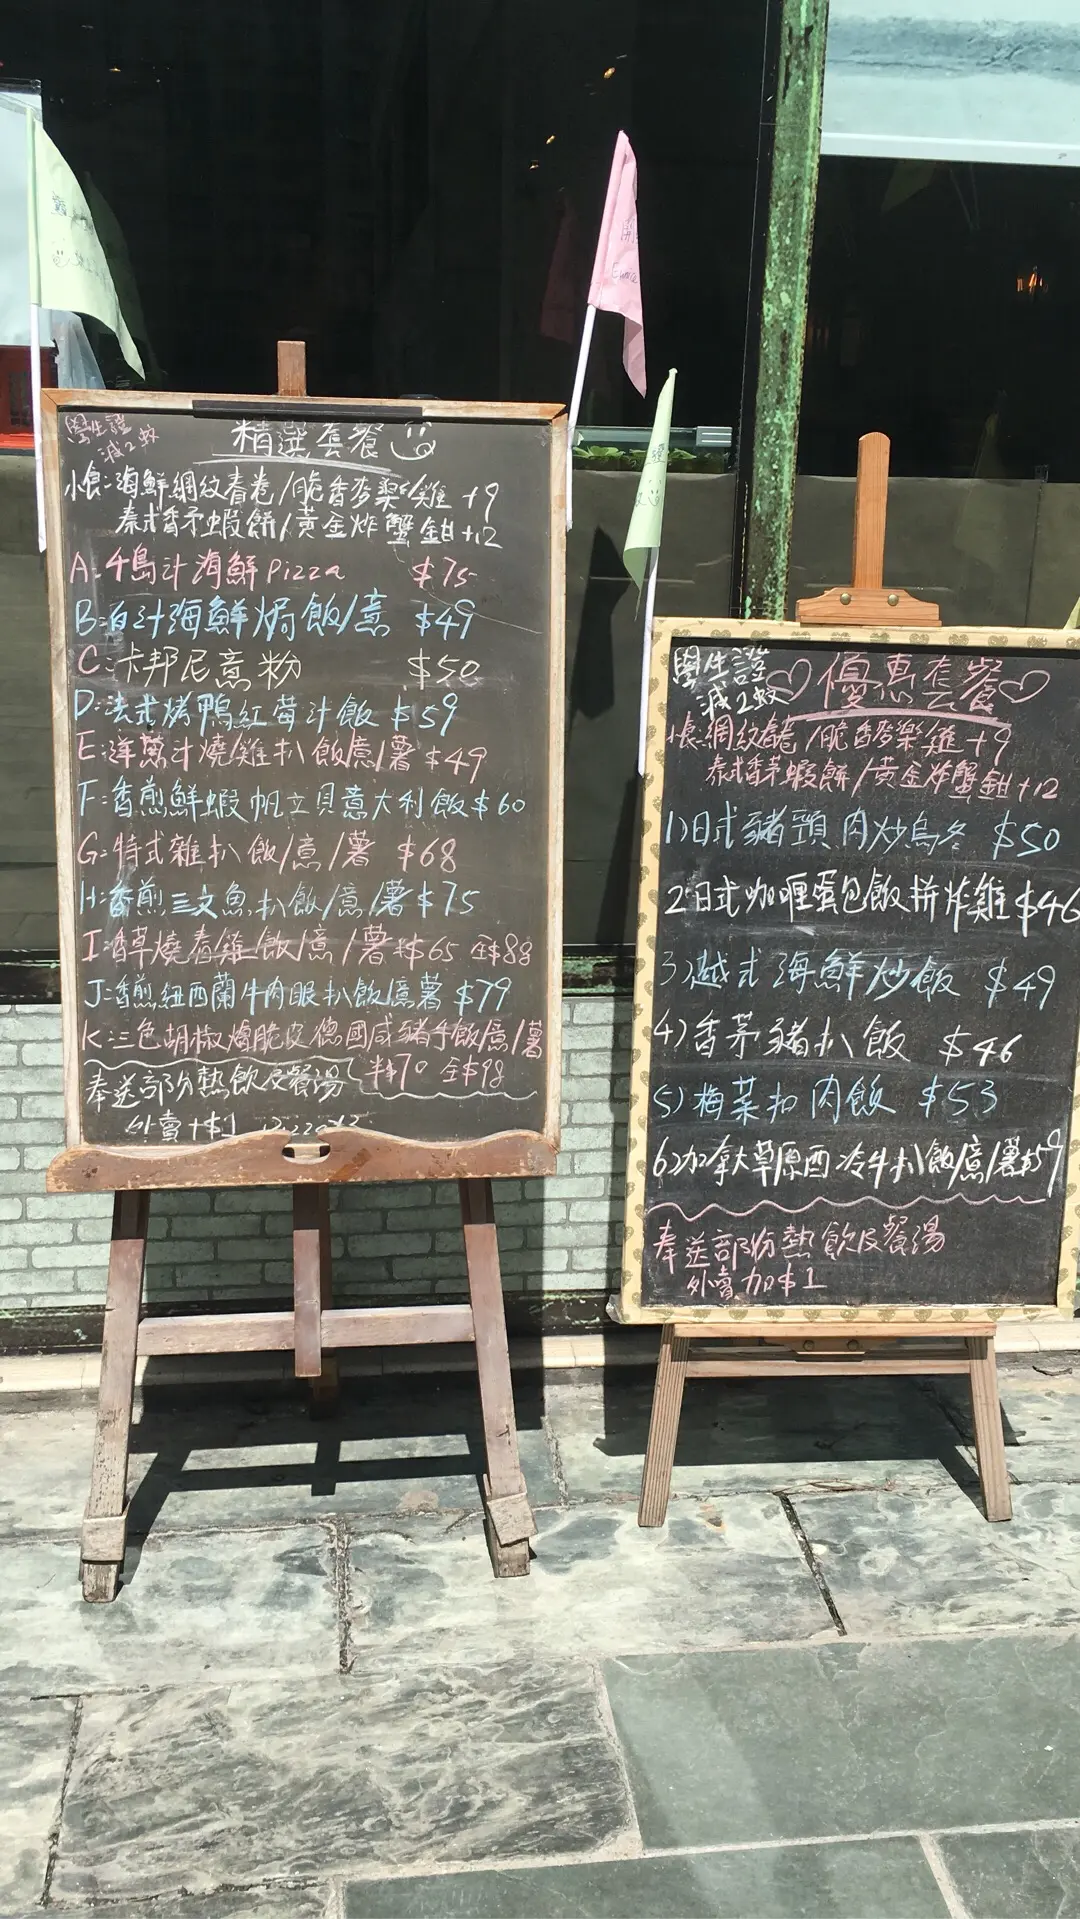 學生證
減2蚊
精選套餐
小食:海鮮網紋春卷/脆香麥樂雞 +9
泰式香矛蝦餅/黃金炸蟹鉗+12
A:千島汁海鮮Pizza $75
B:白汁海鮮焗飯/意 $49
C:卡邦尼意粉 $50
D:法式烤鴨紅莓汁飯 $59
E:洋蔥汁燒雞扒飯/意/薯 $49
F:香煎鮮蝦帆立貝意大利飯 $60
G:特式雜扒飯/意/薯 $68
H:香煎三文魚扒飯/意/薯 $75
I:香草燒春雞飯/意/薯 半$65 全$88
J:香煎紐西蘭牛肉眼扒飯/意/薯 $79
K:三色胡椒燒脆皮德國咸豬手飯/意/薯
半$70 全$98
奉送部份熱飲及餐湯
外賣+$1
學生證
減2蚊
優惠套餐
小食:網紋春卷/脆香麥樂雞+9
泰式香茅蝦餅/黃金炸蟹鉗+12
1)日式豬頸肉炒烏冬 $50
2)日式咖喱蛋包飯拼炸雞 $46
3)越式海鮮炒飯 $49
4)香茅豬扒飯 $46
5)梅菜扣肉飯 $53
6)加拿大草原西冷牛扒飯/意/薯$59
奉送部份熱飲及餐湯
外賣加$1